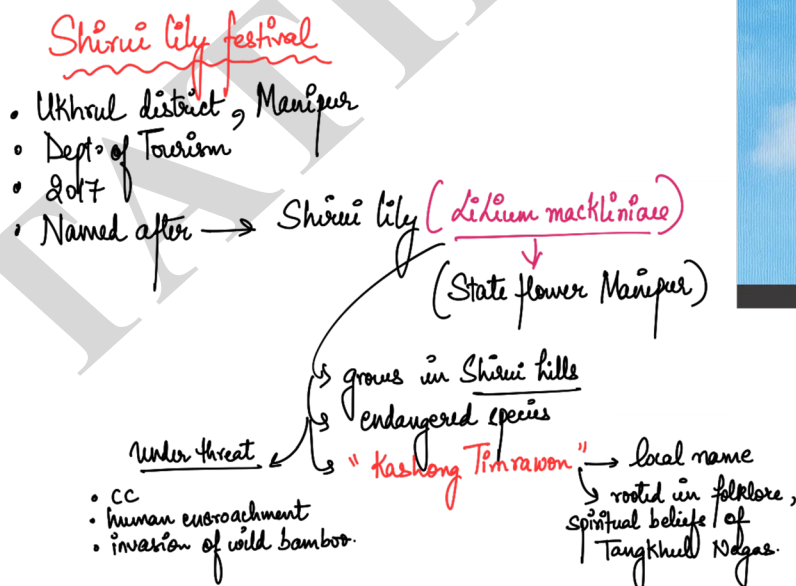 Shirui Lily festival
• Ukhrul district, Manipur
• Dept. of Tourism
• 2017
• Named after → Shirui lily (Lilium mackliniae)
(State flower Manipur)
grows in Shirui hills
endangered species
"Kashong Timrawon" → local name
rooted in folklore,
spiritual beliefs of
Tangkhul Nagas.
under threat
• CC
• human encroachment
• invasion of wild bamboo.